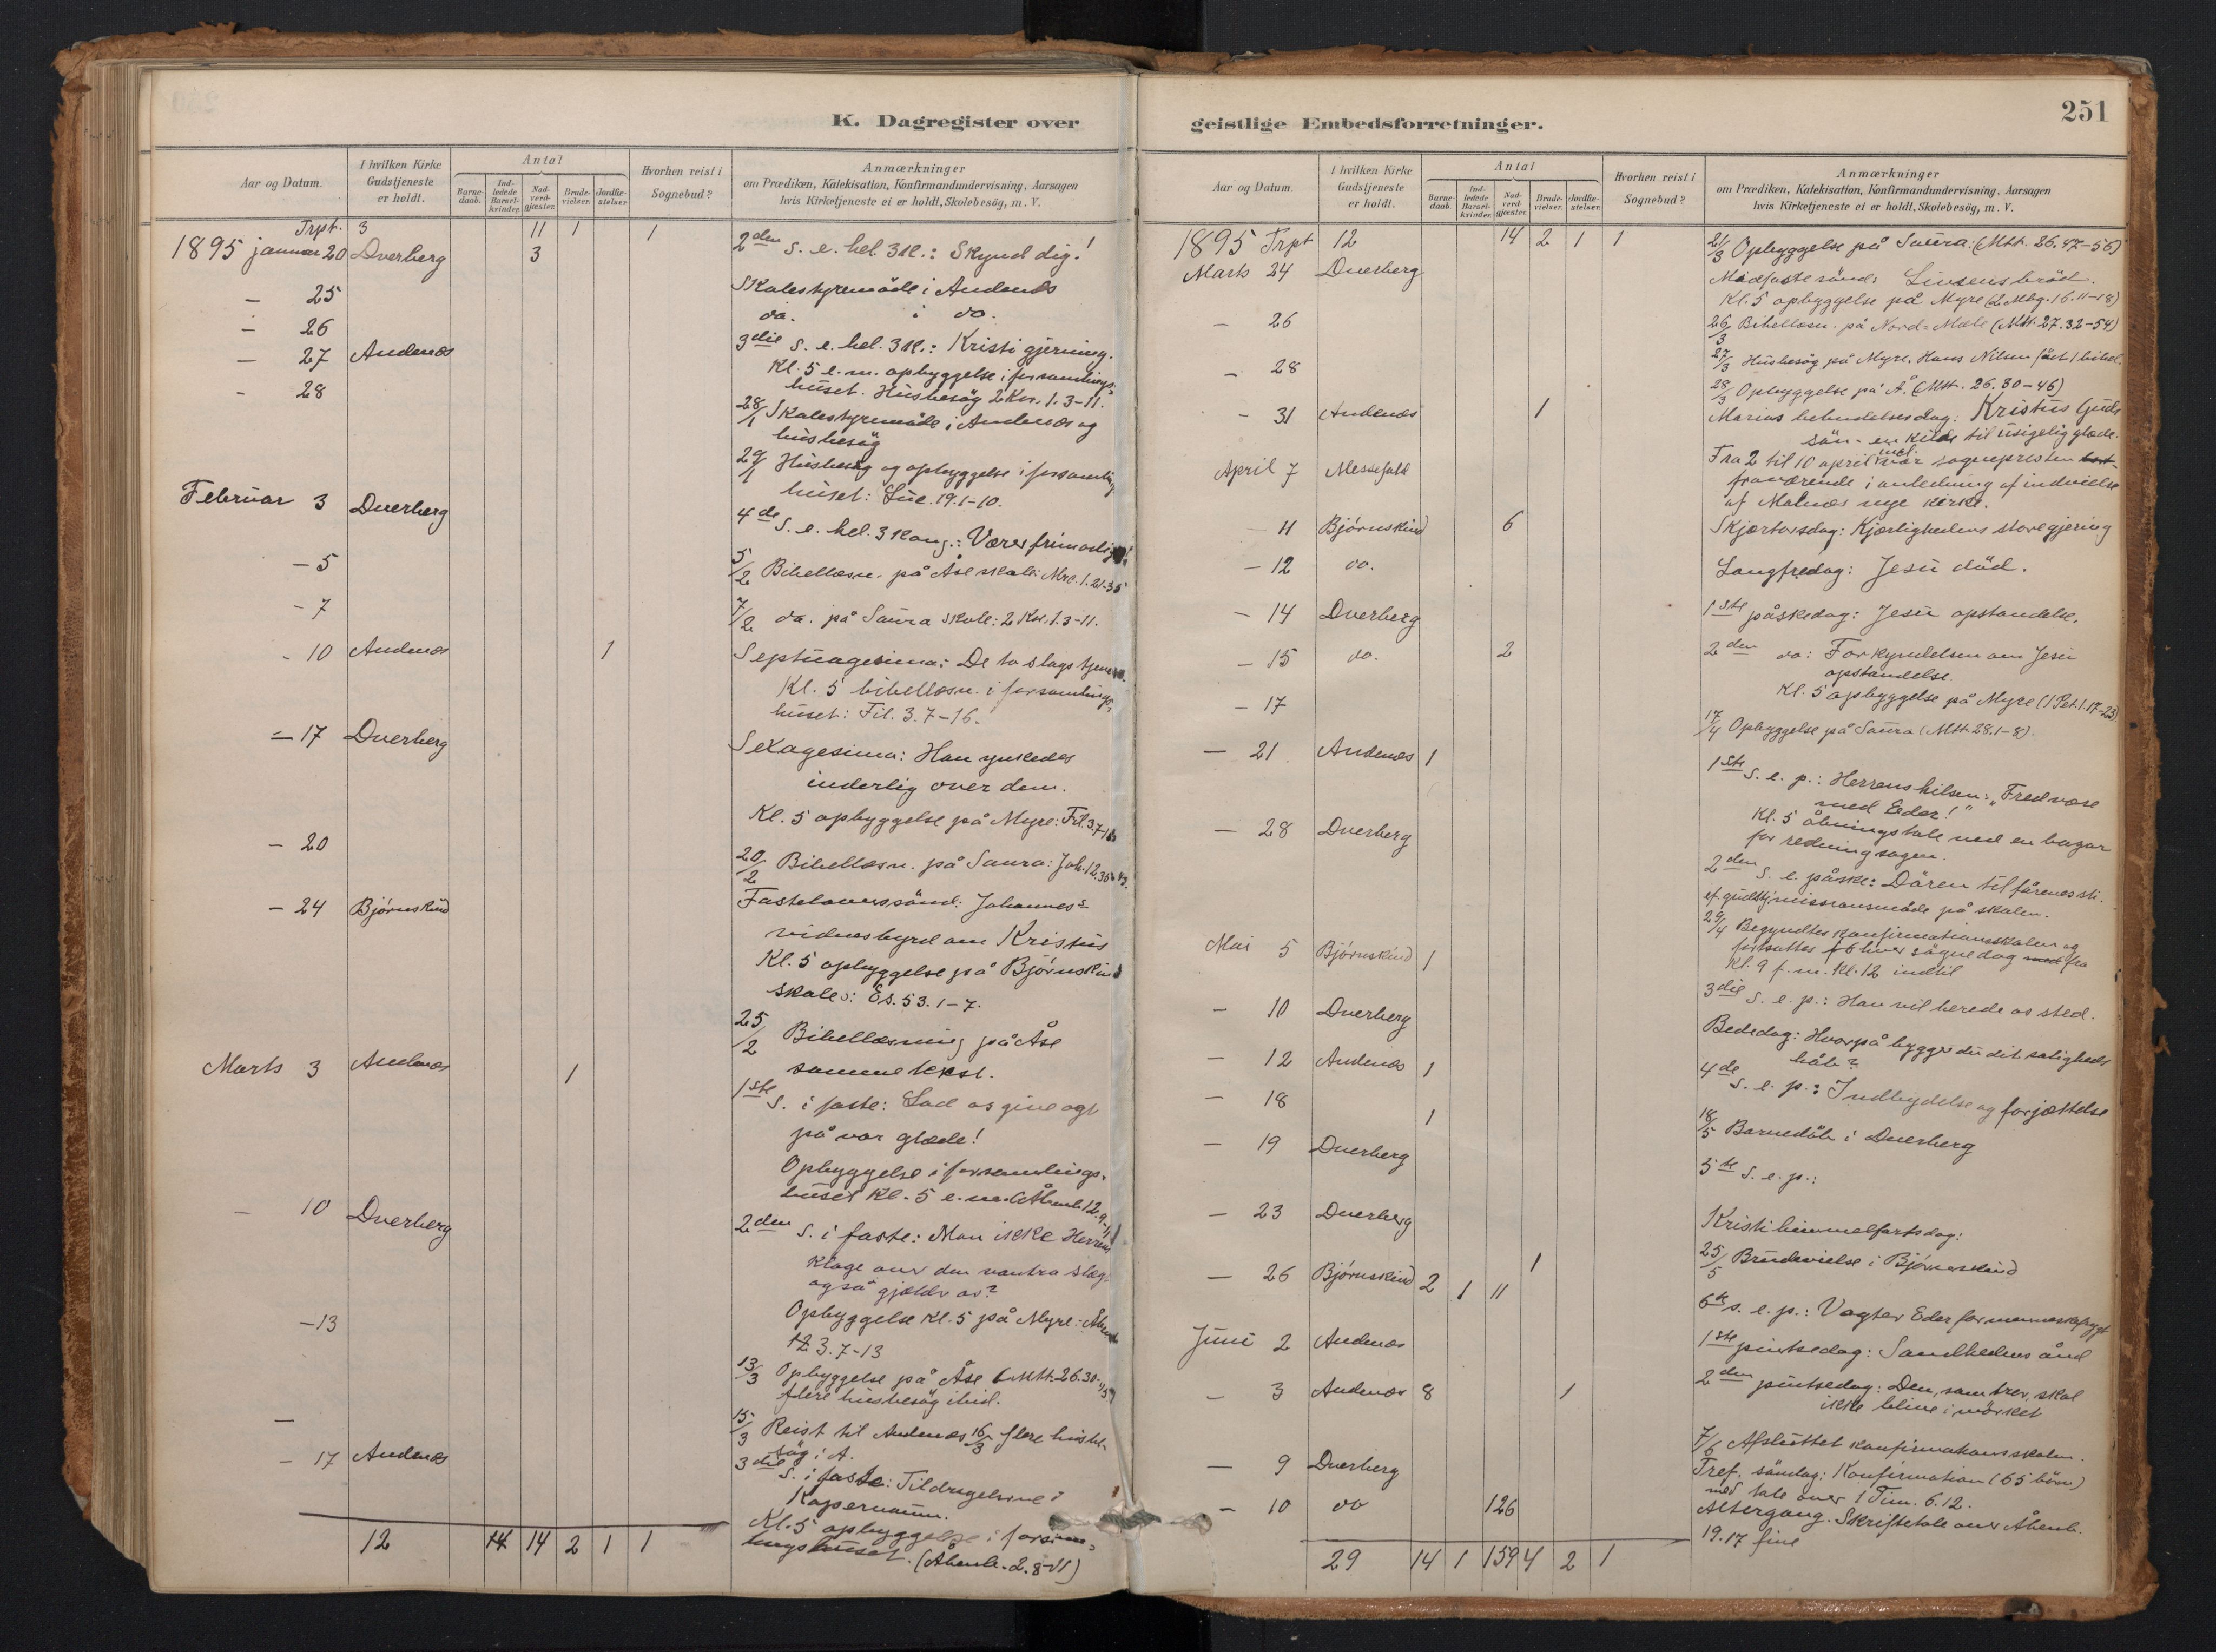 K. Dagregister over
Aar og Datum.
I hvilken Kirke Gudstjeneste er holdt.
Antal
Barnedaab.
Indledede Barselkvinder.
Nadverdgjæster.
Brudevielser.
Jordfæstelser.
Hvorhen reist i Sognebud?
Anmærkninger
om Prædiken, Katekisation, Konfirmandundervisning, Aarsagen
hvis Kirketjeneste ei er holdt, Skolebesög, m. V.
Trpt. 3 11 1 1
1895 januar 20 Dverberg 3 2den s. e. hel. 3 K.: Skynd dig!
- 25 Skolestyremöde i Andenes
- 26 do. i do.
- 27 Andenes 3die s. e. hel. 3 K.: Kristi gjerning.
Kl. 5 e. m. opbyggelse i forsamlings-
- 28 huset. Husbesög 2 Kor. 1. 3-11.
28/1 Skolestyremöde i Andenes og
husbesög
29/1 Husbesög og opbyggelse i forsamlings
huset: Luc. 19. 1-10.
Februar 3 Dverberg 4de s. e. hel. 3 Kong.: Værer frimodige!
- 5 5/2 Bibellæsn. på Åse skole: Mrc. 1. 21-35
- 7 7/2 do. på Saura skole: 2 Kor. 1. 3-11.
- 10 Andenes 1 Septuagesima: De to slags tjenere.
Kl. 5 bibellæsn. i forsamlings-
huset: Fil. 3. 7-16.
- 17 Dverberg Sexagesima: Han ynkedes
inderlig over dem.
Kl. 5 opbyggelse på Myre: Fil. 3. 7-16
- 20 20/2 Bibellæsn. på Saura: Joh. 12.
- 24 Björnskind Fastelavnssönd: Johannes's
vidnesbyrd om Kristus
Kl. 5 opbyggelse på Björnskind
skole: Es. 53. 1-7.
25/2 Bibellæsning på Åse
samme tekst.
Marts 3 Andenes 1 1ste s. i faste: Lad os give agt
på vor glæde!
Opbyggelse i forsamlings-
huset Kl. 5 e. m. (Åbenb. 12. 9-11
- 10 Dverberg 2den s. i faste: Mon ikke Herrens
klage over den vantro slægt
også gjælder os?
Opbyggelse Kl. 5 på Myre: Åbenb
3. 7-13
- 13 13/3 Opbyggelse på Åse (Mtt. 26. 30-
flere husbesög ibid.
- 15/3 Reist til Andenes 16/3 flere husbe-
sög i A.
- 17 Andenes 3die s. i faste: Tildragelserne i
Kapernaum.
Kl. 5 opbyggelse i forsam-
lingshuset. (Åbenb. 2. 8-11)
12 14 14 2 1 1
geistlige Embedsforretninger.
251
Aar og Datum.
I hvilken Kirke Gudstjeneste er holdt.
Antal
Barnedaab.
Indledede Barselkvinder.
Nadverdgjæster.
Brudevielser.
Jordfæstelser.
Hvorhen reist i Sognebud?
Anmærkninger
om Prædiken, Katekisation, Konfirmandundervisning, Aarsagen
hvis Kirketjeneste ei er holdt, Skolebesög, m. V.
1895 Trpt 12 14 2 1 1 21/3 Opbyggelse på Saura: (Mtt. 26. 47-56)
Marts 24 Dverberg Midfaste sönd: Livsens bröd.
Kl. 5 opbyggelse på Myre (2 Mbg. 16. 11-18)
- 26 26/3 Bibellæsn. på Nord-Mæle (Mtt. 27. 32-54)
27/3 Husbesög på Myre. Hans Nilsen fået 1 bibel.
- 28 28/3 Opbyggelse på Å. (Mtt. 26. 30-46)
- 31 Andenes 1 Mariæ bebudelsesdag: Kristus Guds
sön - en kilde til usigelig glæde.
April 7 Messefald Fra 2 til 10 april incl. var sognepresten bort-
fraværende i anledning af indvielse
af Malnes nye kirke.
- 11 Björnskind 6 Skjærtorsdag: Kjærlighedens store gjerning
- 12 do. Langfredag: Jesu död.
- 14 Dverberg 1ste påskedag: Jesu opstandelse.
- 15 do. 2 2den do: Forkyndelsen om Jesu
opstandelse.
Kl. 5 opbyggelse på Myre (1 Pet. 1. 17-23)
- 17 17/4 Opbyggelse på Saura (Mtt. 28. 1-8).
- 21 Andenes 1 1ste s. e. p.: Herrens hilsen: „Fred være
med Eder!"
Kl. 5 åbningstale ved en bazar
for redningsagen.
- 28 Dverberg 2den s. e. påske: Dören til fårenes sti.
ef. gudstj. missionsmöde på skolen.
29/4 Begyndtes konfirmationsskolen og
fortsattes hver sögnedag med fra
Kl. 9 f. m. Kl. 12 indtil
Mai 5 Björnskind 1 3die s. e. p.: Han vil berede os sted.
- 10 Dverberg Bededag: Hvorpå bygger du dit saligheds
håb?
- 12 Andenes 1 4de s. e. p.: Indbydelse og forjættelse
- 18 1 18/5 Barnedåb i Dverberg
- 19 Dverberg 5te s. e. p.:
- 23 Dverberg Kristi himmelfartsdag:
1 25/5 Brudevielse i Björnskind
- 26 Björnskind 2 1 11 6te s. e. p.: Vogter Eder for menneskefrygt
Juni 2 Andenes 1ste pintsedag: Sandhedens ånd
- 3 Andenes 8 1 2den pintsedag: Den, som tror, skal
ikke blive i mörket
7/6 Afsluttet konfirmationsskolen.
- 9 Dverberg Tref. söndag: Konfirmation (65 börn)
med tale over 1 Tim. 6. 12.
- 10 do 126 Altergang. Skriftetale over Åbenb.
19. 17 fine
29 14 1 159 4 2 1